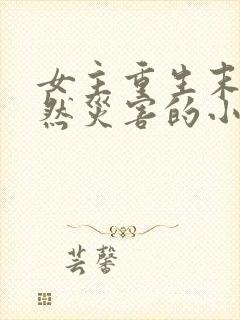 女主重生末
然灾害的小
芸馨